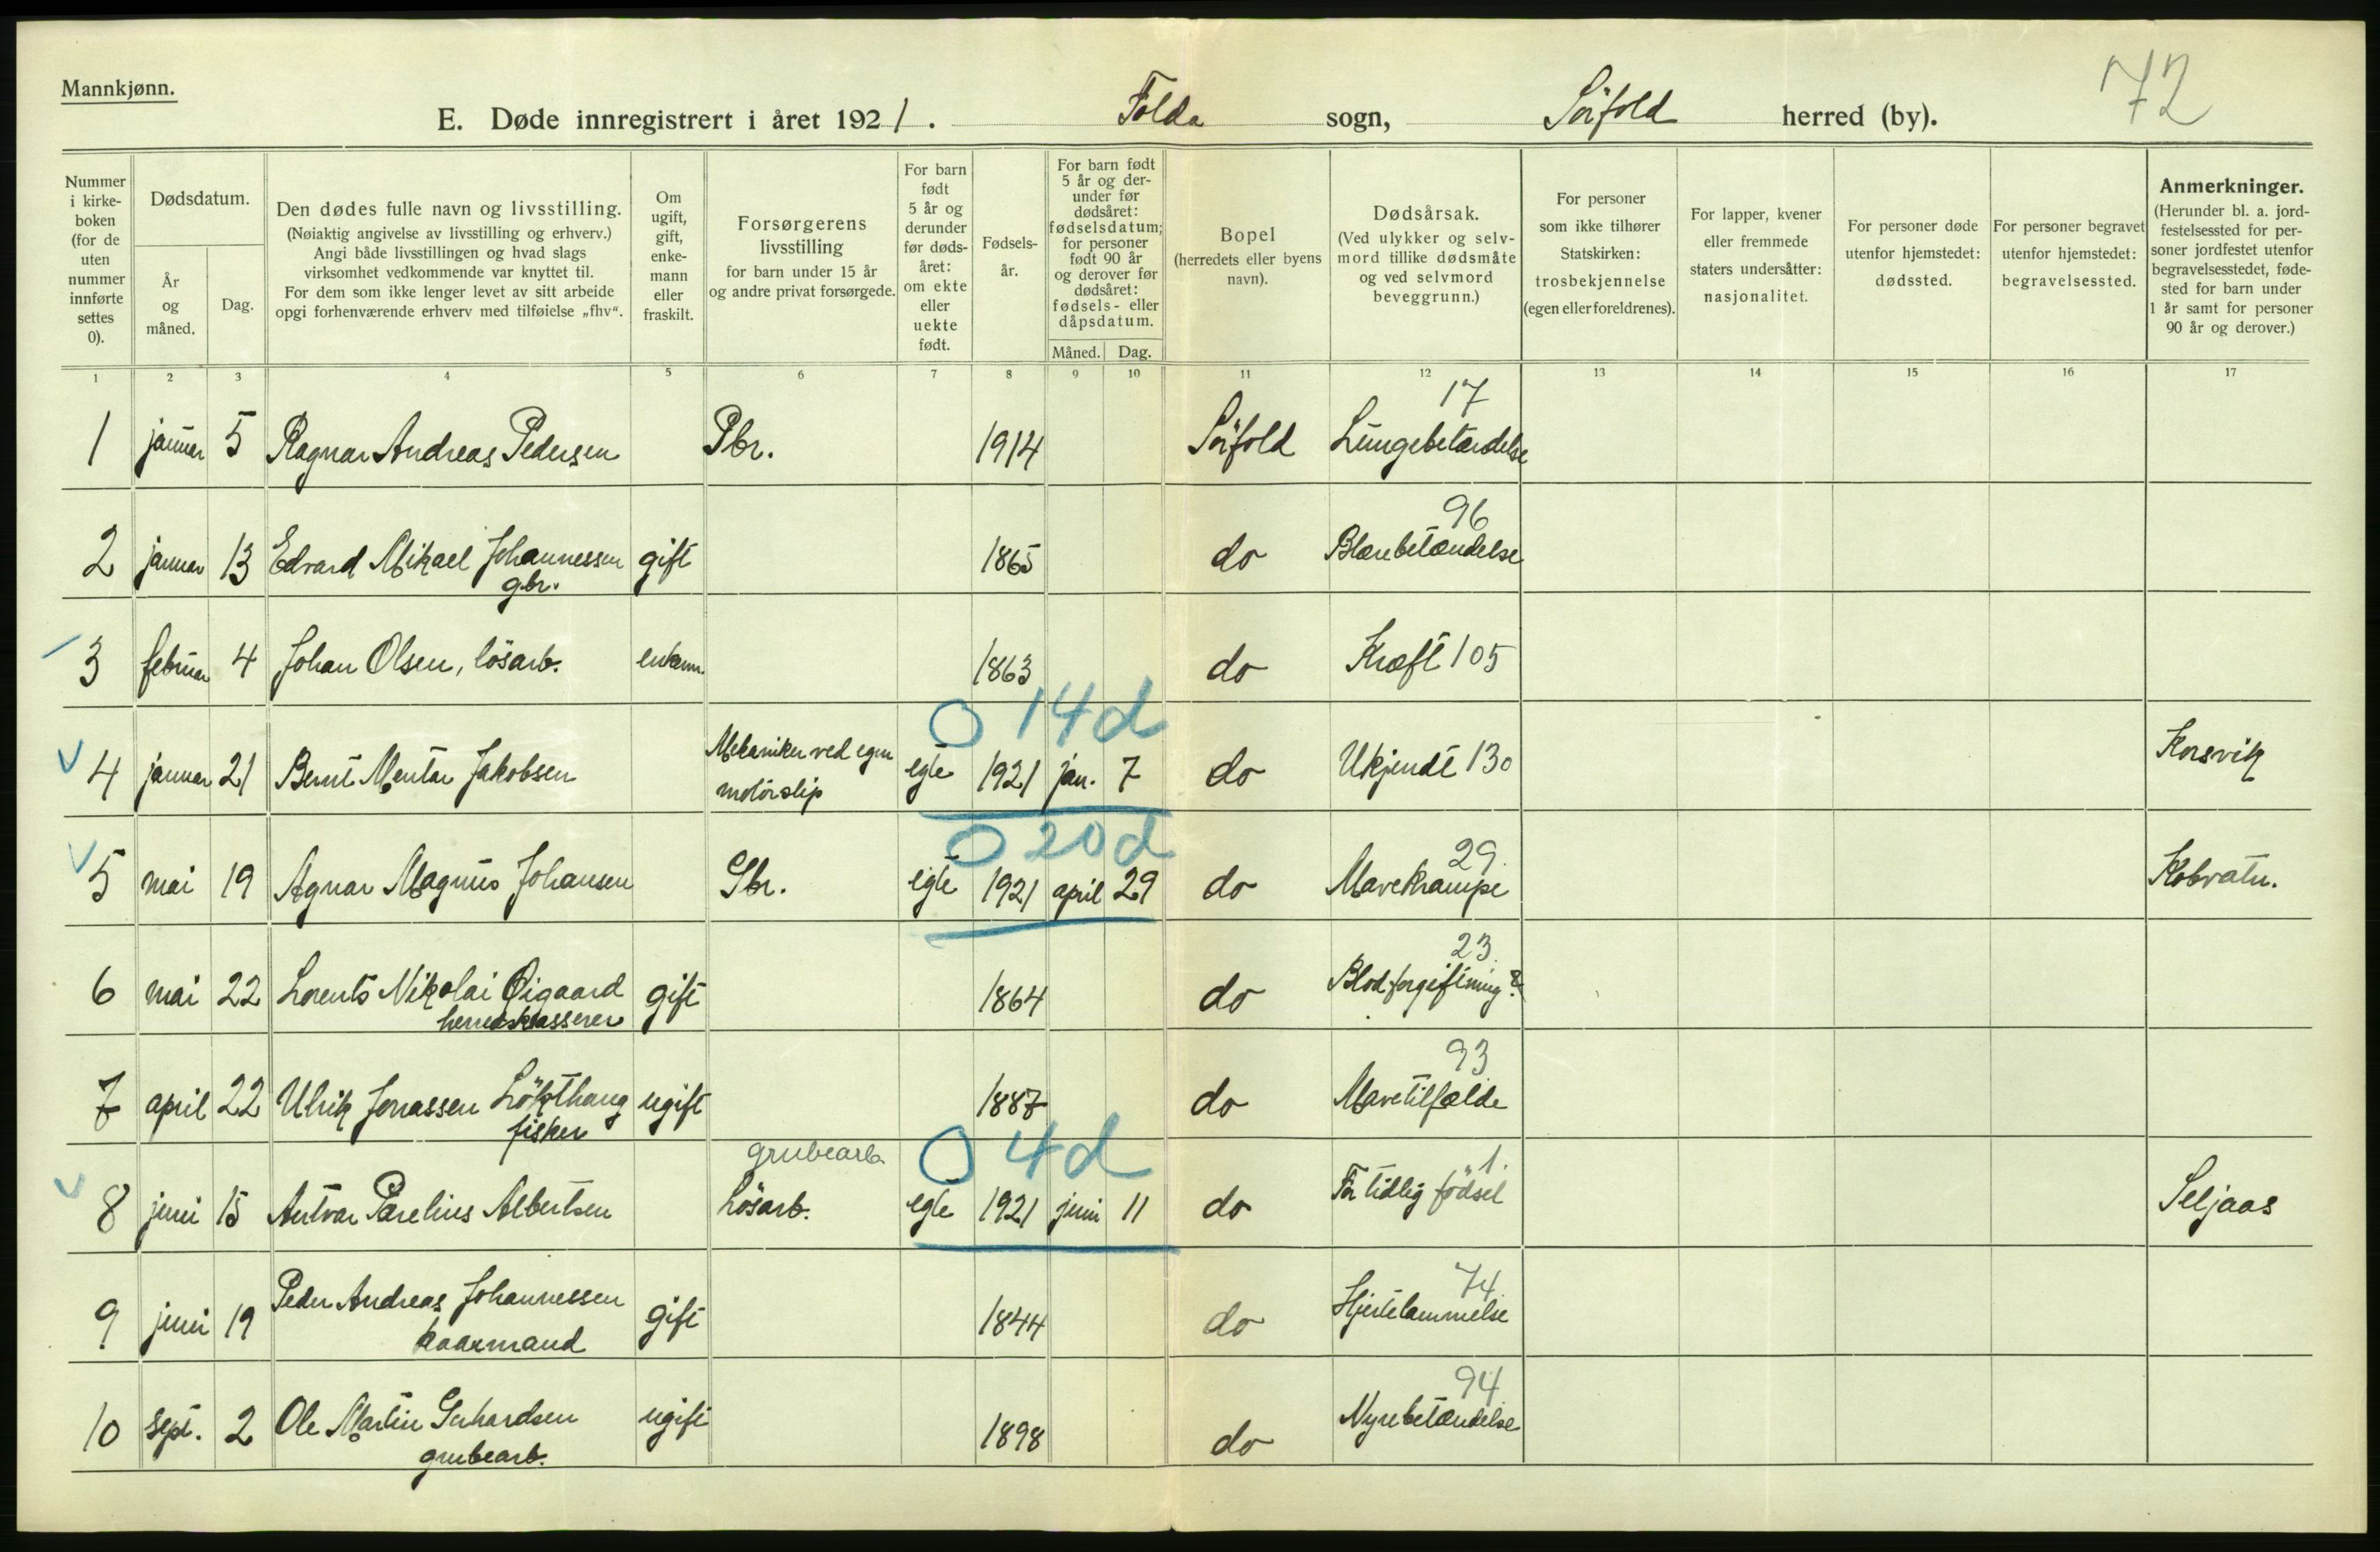 Mannkjønn.
72
E. Døde innregistrert i året 1921. Folda sogn, Sörfold herred (by).
Nummer i kirkeboken (for de uten nummer innførte settes 0).
Dødsdatum.
År og måned.
Dag.
Den dødes fulle navn og livsstilling.
(Nøiaktig angivelse av livsstilling og erhverv.)
Angi både livsstillingen og hvad slags
virksomhet vedkommende var knyttet til.
For dem som ikke lenger levet av sitt arbeide
opgi forhenværende erhverv med tilføielse „fhv“.
Om ugift, gift, enkemann eller fraskilt.
Forsørgerens
livsstilling
for barn under 15 år
og andre privat forsørgede.
For barn født 5 år og derunder før dødsåret: om ekte eller uekte født.
Fødselsår.
For barn født 5 år og derunder før dødsåret: fødselsdatum; for personer født 90 år og derover før dødsåret: fødsels- eller dåpsdatum.
Måned. Dag.
Bopel
(herredets eller byens navn).
Dødsårsak.
(Ved ulykker og selvmord tillike dødsmåte og ved selvmord beveggrunn.)
For personer som ikke tilhører Statskirken:
trosbekjennelse
(egen eller foreldrenes).
For lapper, kvener eller fremmede staters undersåtter:
nasjonalitet.
For personer døde utenfor hjemstedet:
dødssted.
For personer begravet utenfor hjemstedet:
begravelsessted.
Anmerkninger.
(Herunder bl. a. jordfestelsessted for personer jordfestet utenfor begravelsesstedet, fødested for barn under 1 år samt for personer 90 år og derover.)
1 2 3 4 5 6 7 8 9 10 11 12 13 14 15 16 17
17
1 januar 5 Ragnar Andreas Pedersen Pbr. 1914 Sörfold Lungebetændelse
96
2 januar 13 Edvard Mikael Johannessen gift 1865 do Blærebetændelse
gbr.
3 februar 4 Johan Olsen, lösarb. enkem. 1863 do Kræft 105
0 14 d
4 januar 21 Bernt Mentar Jakobsen Mekaniker ved egen motorslip egte 1921 jan. 7 do Ukjendt 130 Korsvik
0 20 d
29.
5 mai 19 Agnar Magnus Johansen Gbr. egte 1921 april 29 do Mavekrampe Kobvatn.
23.
6 mai 22 Lorents Nikolai Øigaard gift 1864 do Blodforgiftning?
herredskasserer
93.
7 april 22 Ulrik Jonassen Lökthaug ugift 1887 do Mavetilfælde
fisker
grubearb. 0 4 d
1.
8 juni 15 Antvar Parelius Albertsen Lösarb. egte 1921 juni 11 do For tidlig födsel Seljaas
74.
9 juni 19 Peder Andreas Johannessen gift 1844 do Hjertelammelse
kaarmand
94.
10 sept. 2 Ole Martin Gerhardsen ugift 1898 do Nyrebetændelse
grubearb.